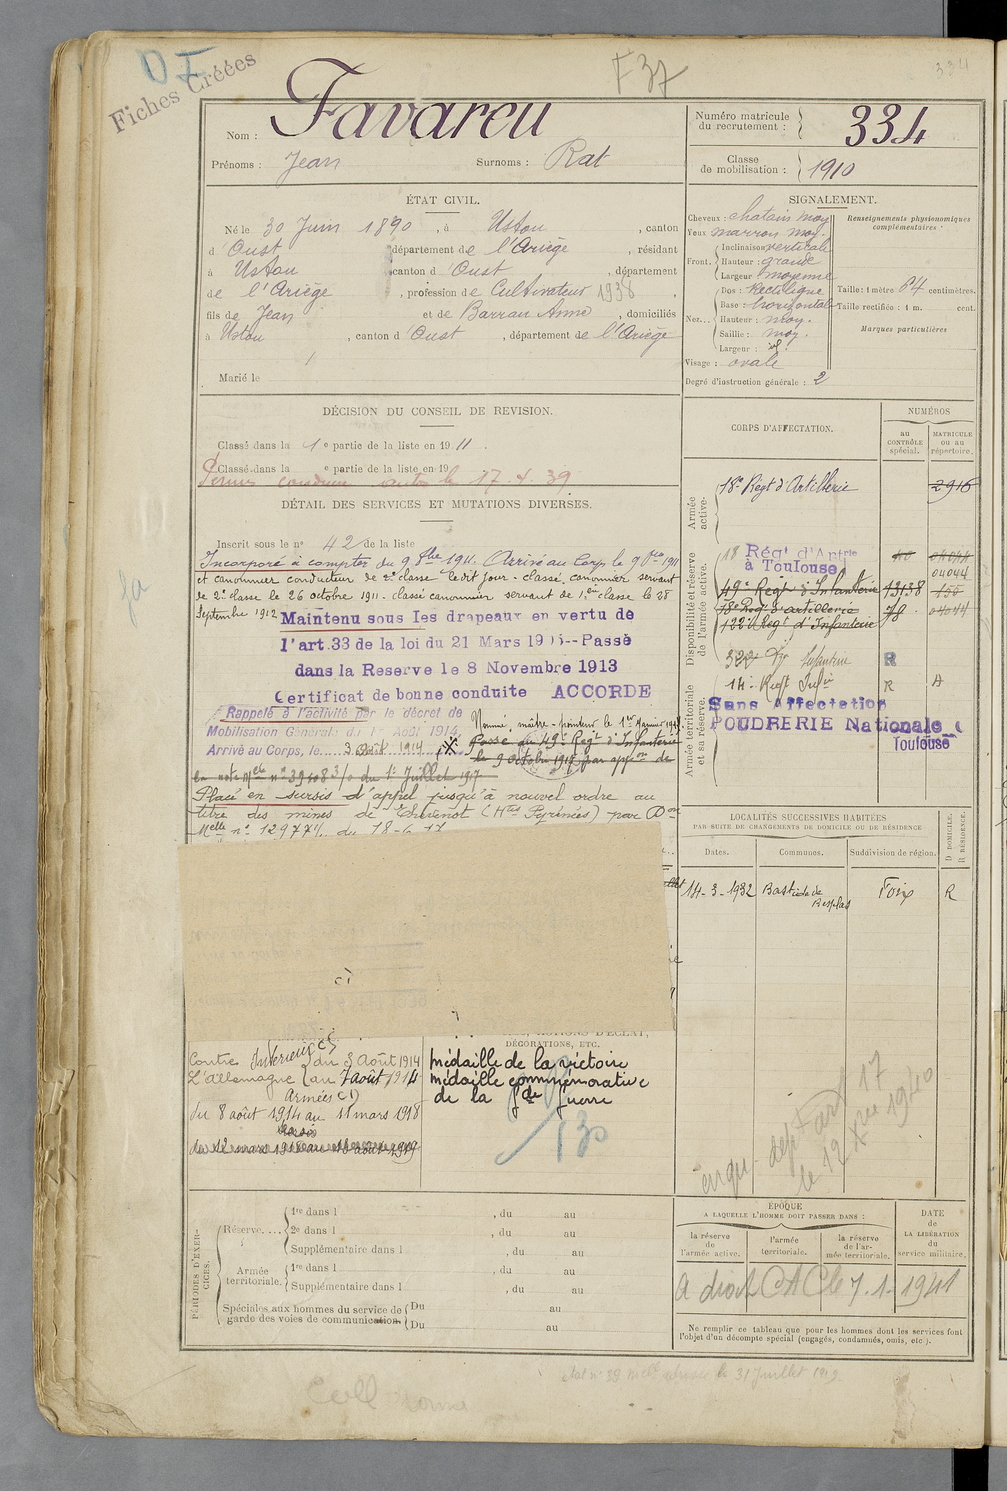 Fiches Créées
F 37
334
Nom : Favareu
Prénoms : Jean Surnoms : Rat
Numéro matricule du recrutement : 334
Classe de mobilisation : 1910
ÉTAT CIVIL.
Né le 30 Juin 1890, à Ustou, canton
d'Oust département de l'Ariège, résidant
à Ustou canton d'Oust, département
de l'Ariège, profession de Cultivateur 1938,
fils de Jean et de Barrau Anne, domiciliés
à Ustou, canton d'Oust, département de l'Ariège
Marié le
SIGNALEMENT.
Cheveux : chatain moy
Yeux marron moy.
Front. Inclinaison verticale
Hauteur : grande
Largeur moyenne
Nez... Dos : Rectiligne
Base : horizontale
Hauteur : moy.
Saillie : moy.
Largeur :
Visage : ovale
Degré d'instruction générale : 2
Renseignements physionomiques complémentaires :
Taille : 1 mètre 64 centimètres.
Taille rectifiée : 1 m. cent.
Marques particulières
DÉCISION DU CONSEIL DE REVISION.
Classé dans la 1e partie de la liste en 1911.
Classé dans la e partie de la liste en 19
Permis conduire autos le 17.4.39
DÉTAIL DES SERVICES ET MUTATIONS DIVERSES.
Inscrit sous le no 42 de la liste
Incorporé à compter du 9 8bre 1911. Arrivé au Corps le 9 8bre 1911
et canonnier conducteur de 2e classe le dit jour - classé canonnier servant
de 2e classe le 26 octobre 1911 - classé canonnier servant de 1ère classe le 28
Septembre 1912 Maintenu sous les drapeaux en vertu de
l'art.33 de la loi du 21 Mars 1905--Passé
dans la Reserve le 8 Novembre 1913
Certificat de bonne conduite ACCORDE
Rappelé à l'activité par le décret de
Mobilisation Générale du 1er Août 1914.
Arrivé au Corps, le 3 Août 1914
Nommé maître-pointeur le 1er Janvier
Passé au 49e Régt d'Infanterie
le 9 octobre 1917 par appon de
la note Melle no 39408 3/0 du 1er Juillet 1917
Placé en sursis d'appel jusqu'à nouvel ordre au
titre des mines de (Htes Pyrénées) par Don
Melle no 12977
CORPS D'AFFECTATION.
NUMÉROS
au CONTRÔLE spécial.
MATRICULE ou au répertoire.
Armée active.
18e Regt d'Artillerie 2916
Disponibilité et réserve de l'armée active.
18 Régt d'Artrie
à Toulouse
04044
49e Régt d'Infanterie 13158
18e Regt d'artillerie 78 04044
122e Regt d'Infanterie
Armée territoriale et sa réserve.
322e Infanterie R
14e Regt Infie R A
Sans Affectation
POUDRERIE Nationale
Toulouse
LOCALITÉS SUCCESSIVES HABITÉES
PAR SUITE DE CHANGEMENTS DE DOMICILE OU DE RÉSIDENCE
Dates. Communes. Subdivision de région. D DOMICILE. R RÉSIDENCE.
14-3-1932 Bastide de Besplas Foix R
DÉCORATIONS, ETC.
Contre Intérieur du 3 Août 1914
L'Allemagne au 7 août 1914
Armées
du 8 août 1914 au 11 mars 1918
du 12 mars 1918 au 18 août 1919
médaille de la victoire
médaille commémorative
de la Gde Guerre
130
le 12 Xbre 1940
PÉRIODES D'EXERCICES.
Réserve.... 1re dans l , du au
2e dans l , du au
Supplémentaire dans l , du au
Armée territoriale. 1re dans l , du au
Supplémentaire dans l , du au
Spéciales aux hommes du service de garde des voies de communication. Du au
Du au
ÉPOQUE
A LAQUELLE L'HOMME DOIT PASSER DANS :
la réserve de l'armée active. l'armée territoriale. la réserve de l'armée territoriale.
DATE de LA LIBÉRATION du service militaire.
A droit CA Cl 7.1.1941
Ne remplir ce tableau que pour les hommes dont les services font l'objet d'un décompte spécial (engagés, condamnés, omis, etc.).
le 31 Juillet 1919